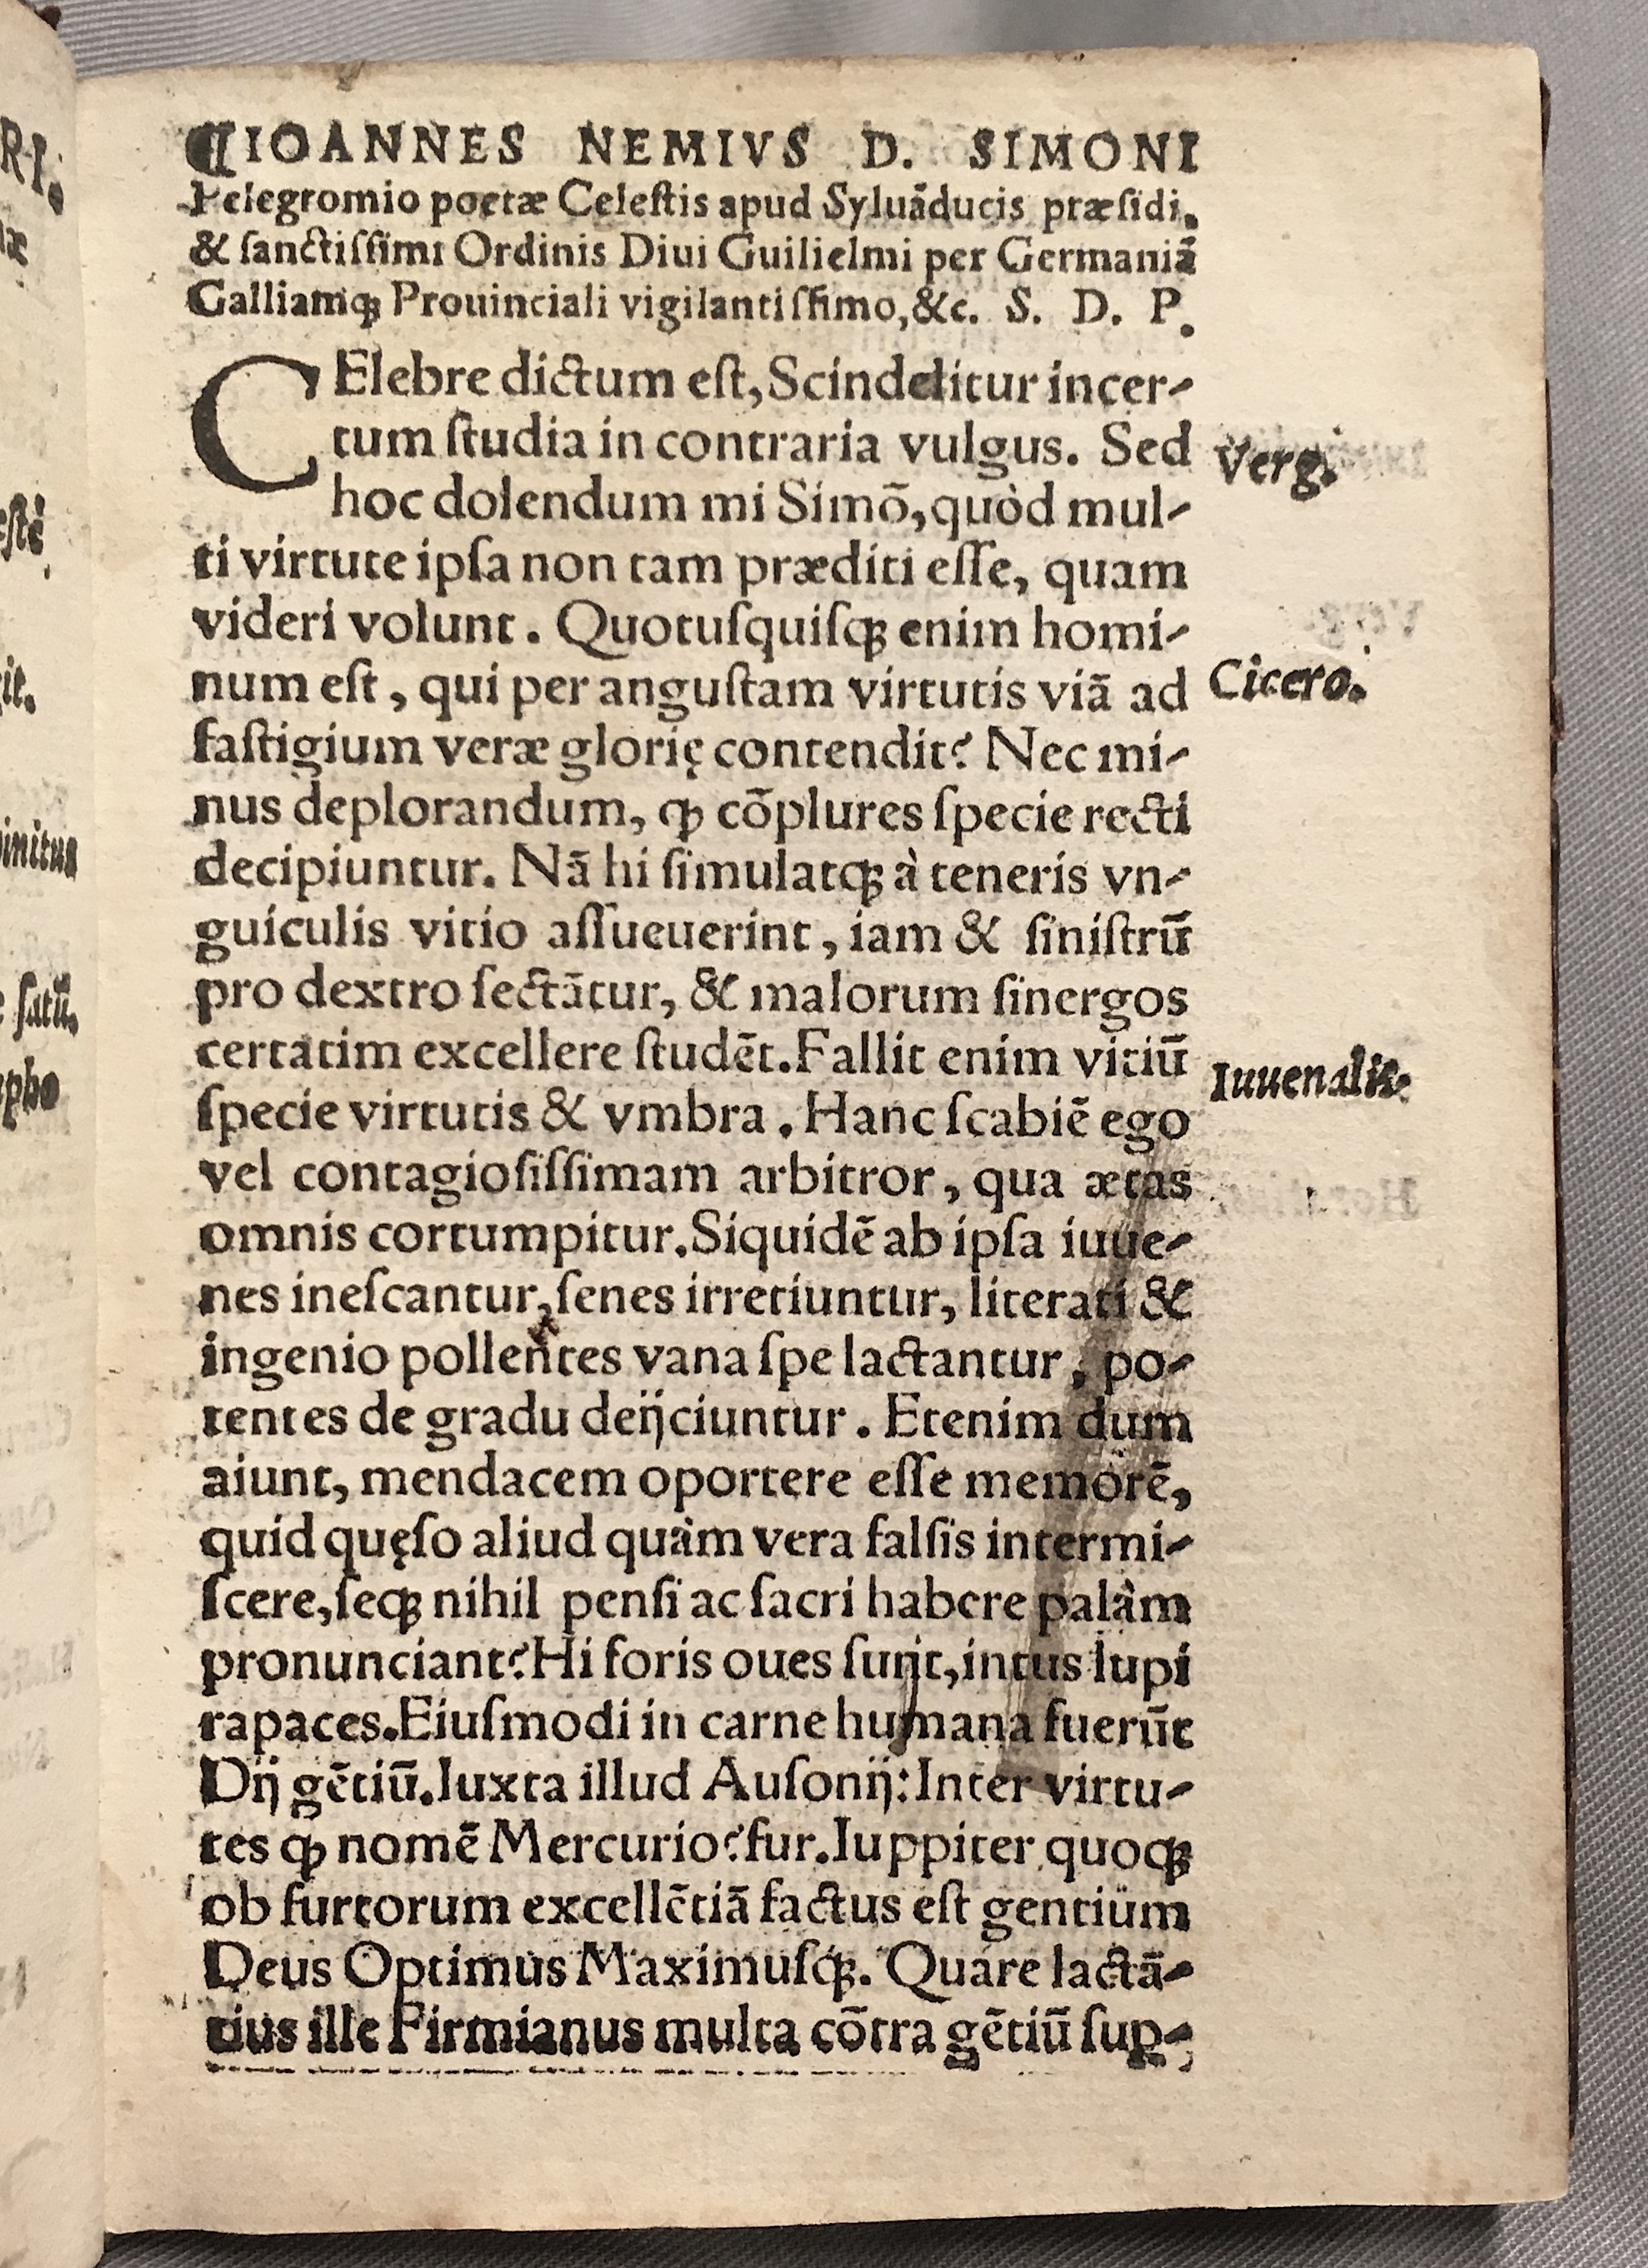 ¶IOANNES NEMIVS D. SIMONI
Pelegromio poetæ Celestis apud Syluāducis præsidi,
& sanctissimi Ordinis Diui Guilielmi per Germaniā
Galliamqꝫ Prouinciali vigilantissimo, &c. S. D. P.
CElebre dictum est, Scinditur incer-
tum studia in contraria vulgus. Sed
Verg.
hoc dolendum mi Simō, quòd mul-
ti virtute ipsa non tam præditi esse, quam
videri volunt. Quotusquisqꝫ enim homi-
num est, qui per angustam virtutis viā ad
Cicero.
fastigium veræ glorię contendit? Nec mi-
nus deplorandum, ꝙ cōplures specie recti
decipiuntur. Nā hi simulatqꝫ à teneris vn-
guiculis vitio assueuerint, iam & sinistrū
pro dextro sectātur, & malorum sinergos
certatim excellere studēt. Fallit enim vitiū
Iuuenalis.
specie virtutis & vmbra. Hanc scabiē ego
vel contagiosissimam arbitror, qua ætas
omnis corrumpitur. Siquidē ab ipsa iuue-
nes inescantur, senes irretiuntur, literati &
ingenio pollentes vana spe lactantur, po-
tentes de gradu deijciuntur. Etenim dum
aiunt, mendacem oportere esse memorē,
quid quęso aliud quàm vera falsis intermi-
scere, seqꝫ nihil pensi ac sacri habere palàm
pronunciant? Hi foris oues sunt, intus lupi
rapaces. Eiusmodi in carne humana fuerūt
Dij gētiū. Iuxta illud Ausonij: Inter virtu-
tes ꝙ nomē Mercurio? fur. Iuppiter quoqꝫ
ob furtorum excellētiā factus est gentium
Deus Optimus Maximusqꝫ. Quare lactā-
tius ille Firmianus multa cōtra gētiū sup-
RI.
æ
estē
it.
initus
satū.
pho